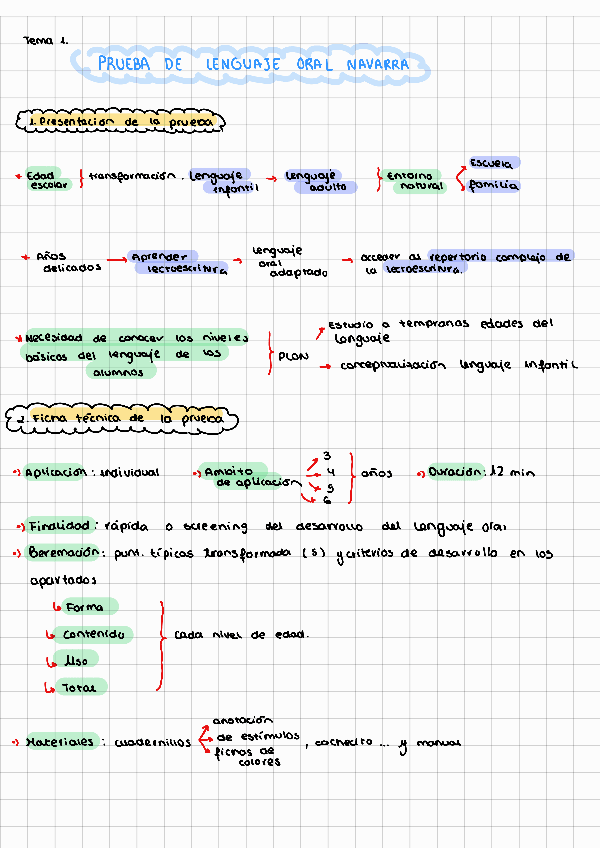 Tema 1.
PRUEBA DE LENGUAJE ORAL NAVARRA
1. Presentación de la prueba
→ Edad escolar } transformación. Lenguaje infantil → Lenguaje adulto } Entorno natural → Escuela
→ familia
→ Años delicados → Aprender lectoescritura → lenguaje oral adaptado → acceder al repertorio complejo de la lectoescritura.
→ Necesidad de conocer los niveles básicos del lenguaje de los alumnos } PLAN → Estudio a tempranas edades del lenguaje
→ conceptualización lenguaje infantil
2. Ficha técnica de la prueba
→ Aplicación: individual → Ambito de aplicación → 3 → 4 → 5 → 6 } años → Duración: 12 min
→ Finalidad: rápida o screening del desarrollo del lenguaje oral
→ Beremación: punt. típicas transformada (S) y criterios de desarrollo en los
apartados
↳ Forma
↳ Contenido
↳ Uso
↳ Total
} Cada nivel de edad.
→ Materiales: cuadernillos → anotación → de estímulos → fichas de colores , cochecito ... y manual